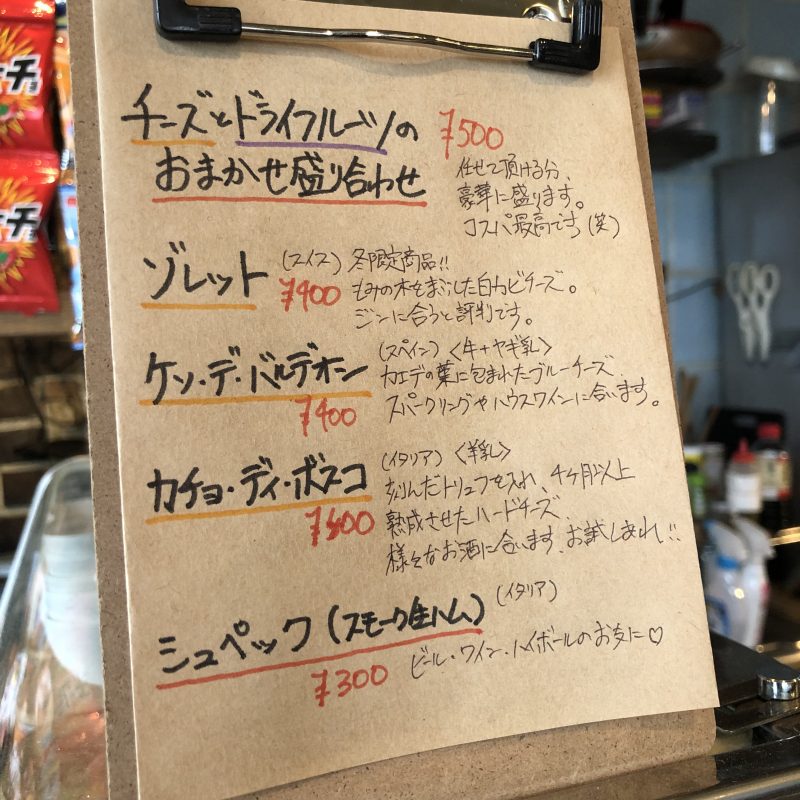 チーズとドライフルーツの
おまかせ盛り合わせ
¥500
任せて頂ける分、
豪華に盛ります。
コスパ最高です(笑)
ゾレット
(スイス) 冬限定商品!!
¥400
もみの木をまぶした白カビチーズ。
ジンに合うと評判です。
ケソ・デ・バルデオン
(スペイン) <牛+ヤギ乳>
カエデの葉に包まれたブルーチーズ。
¥400
スパークリングやハウスワインに合います。
カチョ・ディ・ボスコ
(イタリア) <羊乳>
刻んだトリュフを入れ、4ヶ月以上
熟成させたハードチーズ。
様々なお酒に合います。お試しあれ!!
シュペック(スモーク生ハム)
(イタリア)
¥300
ビール・ワイン・ハイボールのお友に♡
チョ
チョ